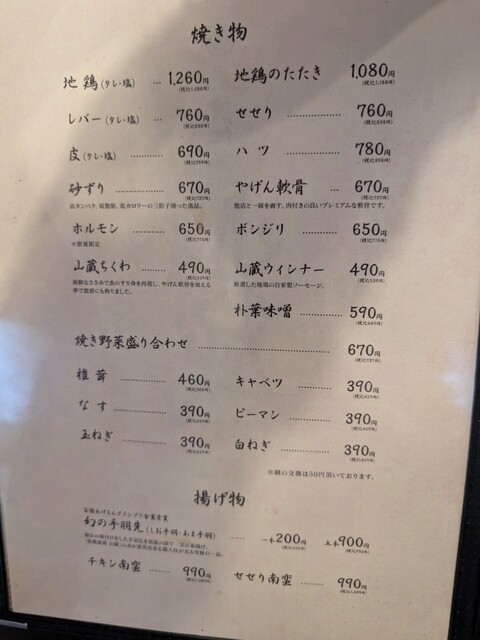 焼き物
地鶏(タレ・塩) … 1,260円
(税込1,386円)
地鶏のたたき 1,080円
(税込1,188円)
レバー(タレ・塩) … 760円
(税込836円)
せせり ………… 760円
(税込836円)
皮(タレ・塩) ……… 690円
(税込759円)
ハツ ………… 780円
(税込858円)
砂ずり ………… 670円
(税込737円)
高タンパク、低脂肪、低カロリーの三拍子揃った逸品。
やげん軟骨 … 670円
(税込737円)
他店と一線を画す、肉付きの良いプレミアムな軟骨です。
ホルモン ……… 650円
(税込715円)
※数量限定
ボンジリ ……… 650円
(税込715円)
山蔵ちくわ …… 490円
(税込539円)
山蔵ウィンナー 490円
(税込539円)
厳選した地鶏の自家製ソーセージ。
朴葉味噌 ……… 590円
(税込649円)
焼き野菜盛り合わせ ………………… 670円
(税込737円)
椎茸 ………… 460円
(税込506円)
キャベツ ……… 390円
(税込429円)
なす ………… 390円
(税込429円)
ピーマン ……… 390円
(税込429円)
玉ねぎ ……… 390円
(税込429円)
白ねぎ ……… 390円
(税込429円)
※網の交換は50円頂いております。
揚げ物
幻の手羽先(しお手羽・あま手羽) …… 一本200円 五本900円
チキン南蛮 …… 990円
せせり南蛮 …… 990円